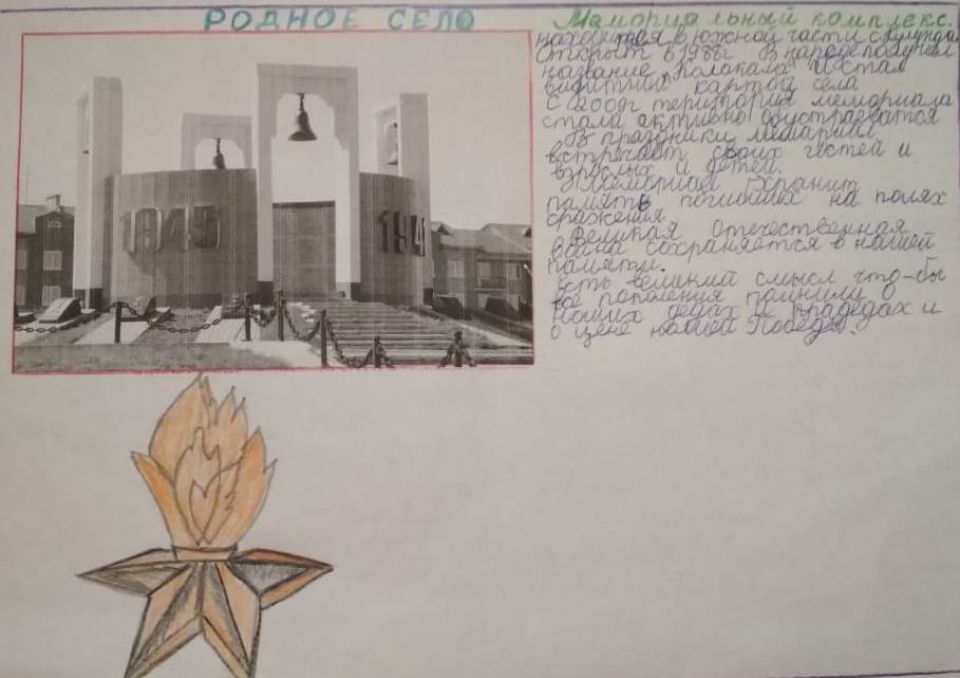 РОДНОЕ СЕЛО
Мемориальный комплекс.
находится в южной части с.
Открыт в 1986г. В народе получил
название Колокола и стал
визитный картой села
С 2009г територия мемориала
стала активно обустраеватся
В праздники мемориал
встречает своих гостей и
взрослых и детей.
Мемориал хранит
память погибших на полях
сражения
Великая Отечественная
война сохраняется в нашей
памяти.
Есть великий смысл что-бы
все поколения помнили о
наших дедах и прадедах и
о цене нашей Победы.
1945
1941